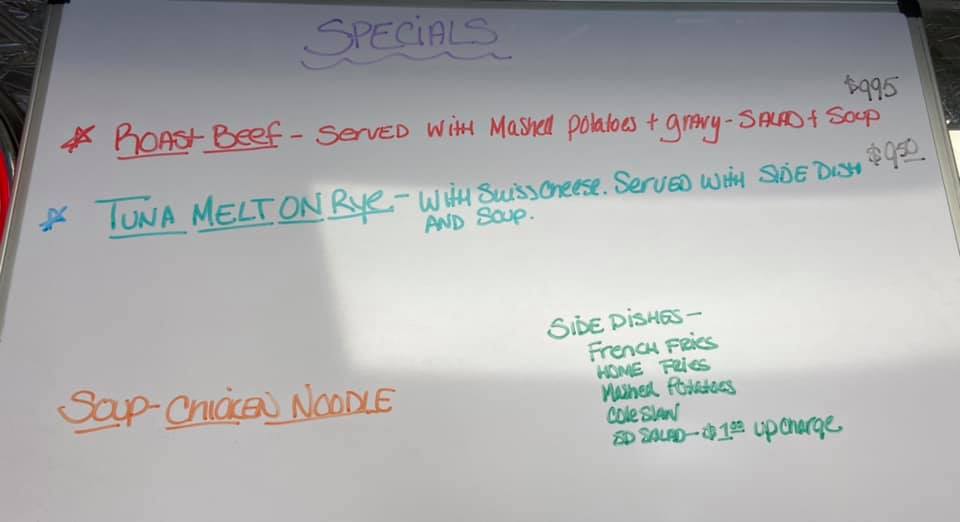 SPECIALS
$995
* ROAST BEEF - SERVED WITH Mashed Potatoes + gravy - SALAD + Soup
* TUNA MELT ON Rye - WITH Swiss Cheese. SERVED WITH SIDE DISH $950
AND Soup.
SIDE DISHES -
FRENCH FRIES
HOME FRIES
Mashed Potatoes
Cole Slaw
SD SALAD - $1.00 upcharge
Soup - CHICKEN NOODLE